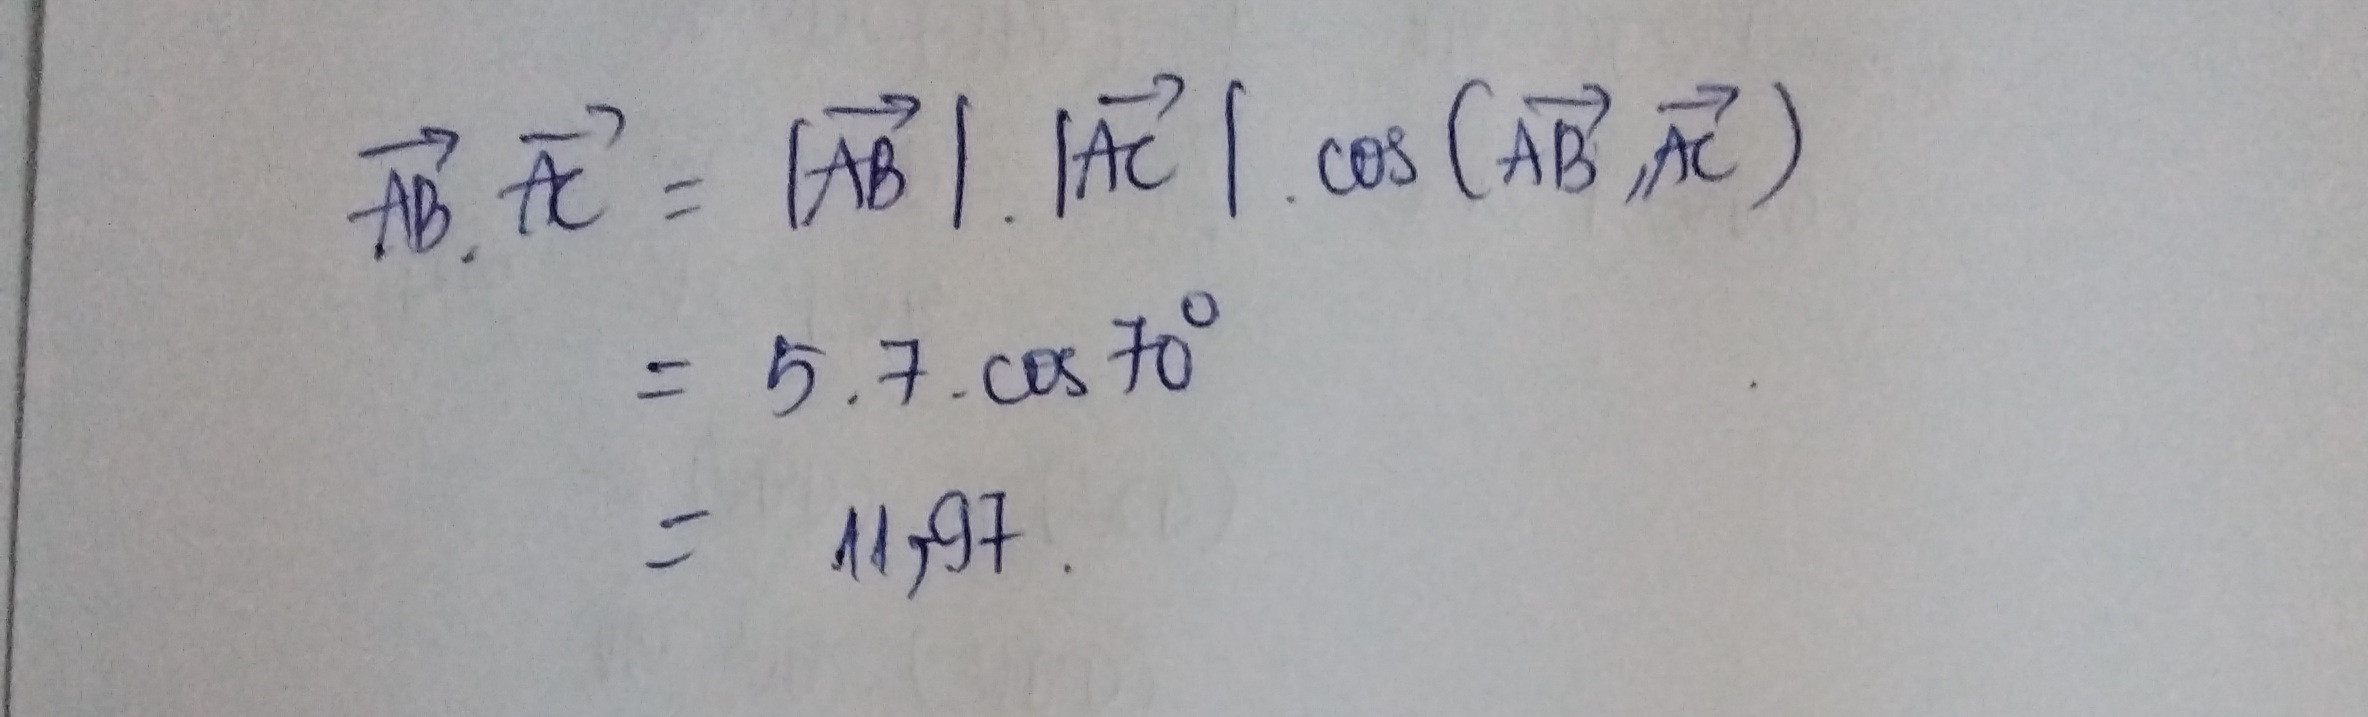 $\overrightarrow{AB} . \overrightarrow{AC} = |\overrightarrow{AB}| . |\overrightarrow{AC}| . \cos(\overrightarrow{AB}, \overrightarrow{AC})$
$= 5 . 7 . \cos 70^0$
$= 11,97 .$